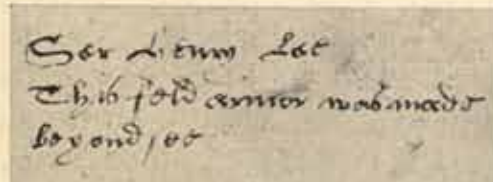 Ser Henry Lee
This feld armor was made
beyond see